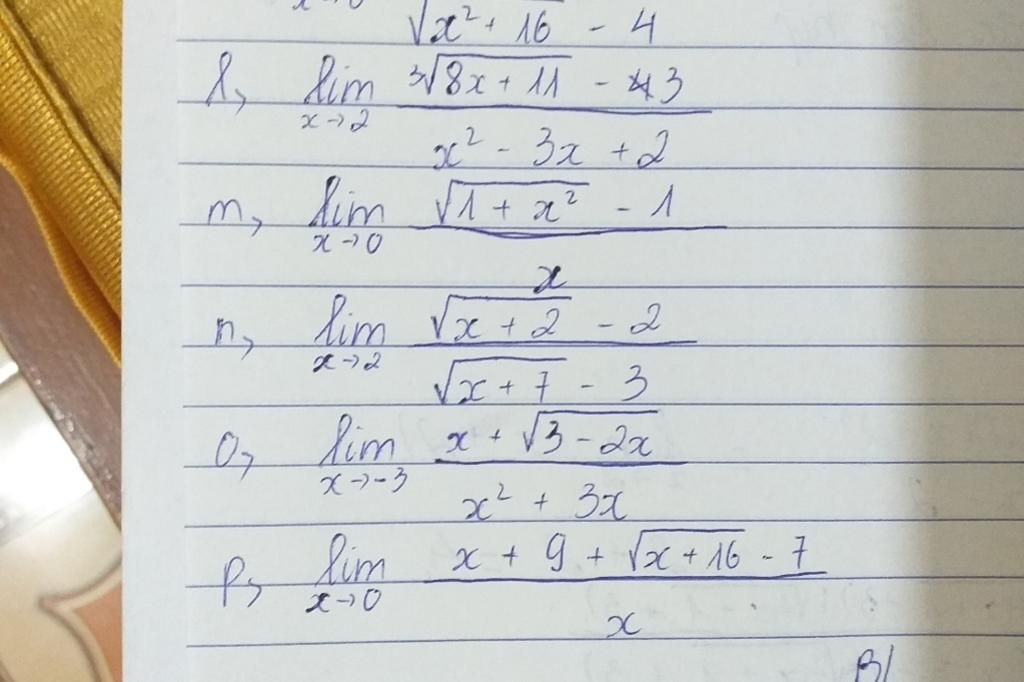 √x² + 16 - 4
l, lim x→2 ³√8x + 11 - 3
x² - 3x + 2
m, lim x→0 √1 + x² - 1
x
n, lim x→2 √x + 2 - 2
√x + 7 - 3
o, lim x→-3 x + √3 - 2x
x² + 3x
p, lim x→0 x + 9 + √x + 16 - 7
x